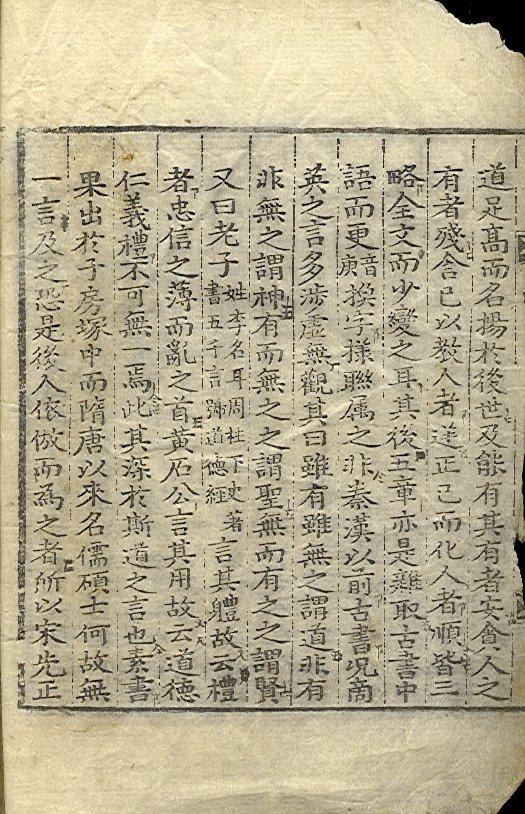 道足高而名揚於後世及能有其有者安貪人之
有者殘合已以教人者逆正己而化人者順皆三
略全文而少變之耳其後五章亦是雜取古書中
語而更音庚換字樣聯属之非秦漢以前古書况商
英之言多涉虛無觀其曰雖有雖無之謂道非有
非無之謂神有而無之之謂聖無而有之之謂賢
又曰老子姓李名耳周柱下史著書五千言號道德經言其軆故云禮
者忠信之薄而亂之首黃石公言其用故云道德
仁義禮不可無一焉此其深於斯道之言也素書
果出於子房塚中而隋唐以來名儒碩士何故無
一言及之恐是後人依倣而為之者所以宋先正